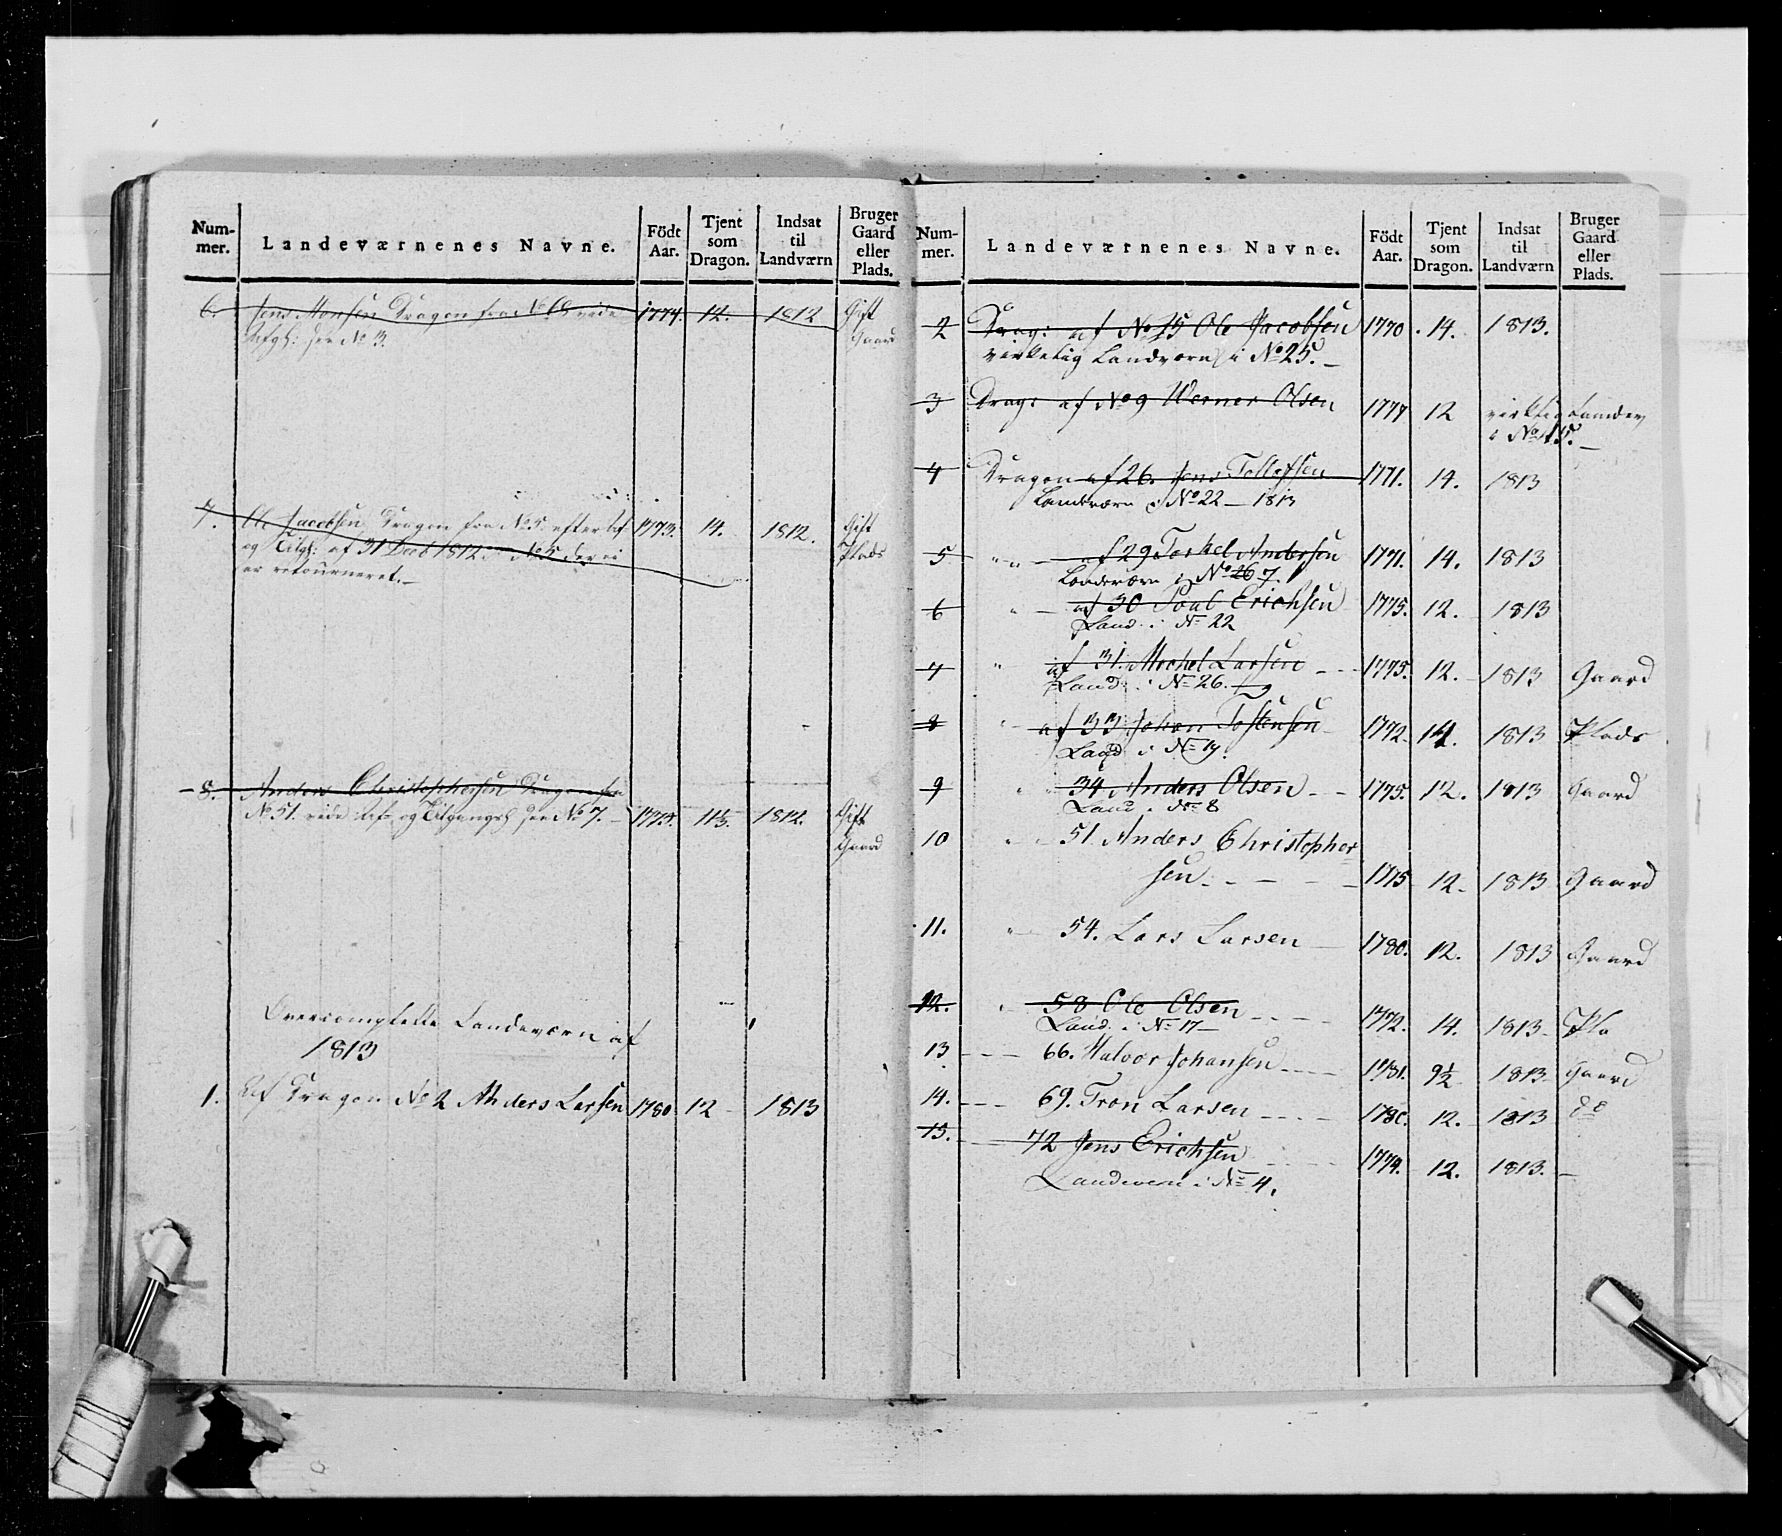 Num-
mer.
Landeværnenes Navne.
Födt
Aar.
Tjent
som
Dragon.
Indsat
til
Landværn
Bruger
Gaard
eller
Plads.
6. Jens Monsen Dragon fra No 60 vide 1774. 12. 1812 Gift
Afgh: see No 3. Gaard
7. Ole Jacobsen Dragon fra No 5 efter Af- 1773. 14. 1812. Gift
og Tilgh: af 31 Decb 1812. No 5 der Plads
er retourneret.
8. Anders Christophersen Dragon fra
No 51. vide Af- og Tilgangsl see No 7. 1775. 11½. 1812. Gift
Gaard
Overcomplette Landeværn af
1813
1. Af Dragon No 2 Anders Larsen 1780 12 1813
Num-
mer.
Landeværnenes Navne.
Födt
Aar.
Tjent
som
Dragon.
Indsat
til
Landværn
Bruger
Gaard
eller
Plads.
2 Drag: af No 15 Ole Jacobsen 1770. 14. 1813.
virkelig Landværn i No 25.
3 Drag: af No 9 Werner Olsen 1777 12 virklig Landev
i No 15.
4 Dragon af 26. Jens Tollefsen 1771. 14. 1813
Landværn i No 22 — 1813
5 " " af 29 Torkel Andersen 1771. 14. 1813
Landeværn i No 26 7.
6 " af 30 Poul Erichsen 1775. 12. 1813
Land: i No 22
7 " af 31. Mechel Larsen 1775. 12. 1813 Gaard
Land: i No 26.
8 " af 33 Johan Tostensen 1772. 14. 1813 Plads
Land i No 19.
9 " 34 Anders Olsen 1775. 12. 1813 Gaard
Land. i No 8
10 " 51 Anders Christopher-
sen 1775 12. 1813 Gaard
11. " 54. Lars Larsen 1780. 12. 1813 Gaard
12. " 58 Ole Olsen 1772. 14. 1813. Pla
Land: i No 17
13 66. Halvor Johansen 1781. 9½ 1813. Gaard
14. 69. Tron Larsen 1780. 12. 1813
15. 72 Jens Erichsen 1774. 12. 1813.
Landevern i No 4.